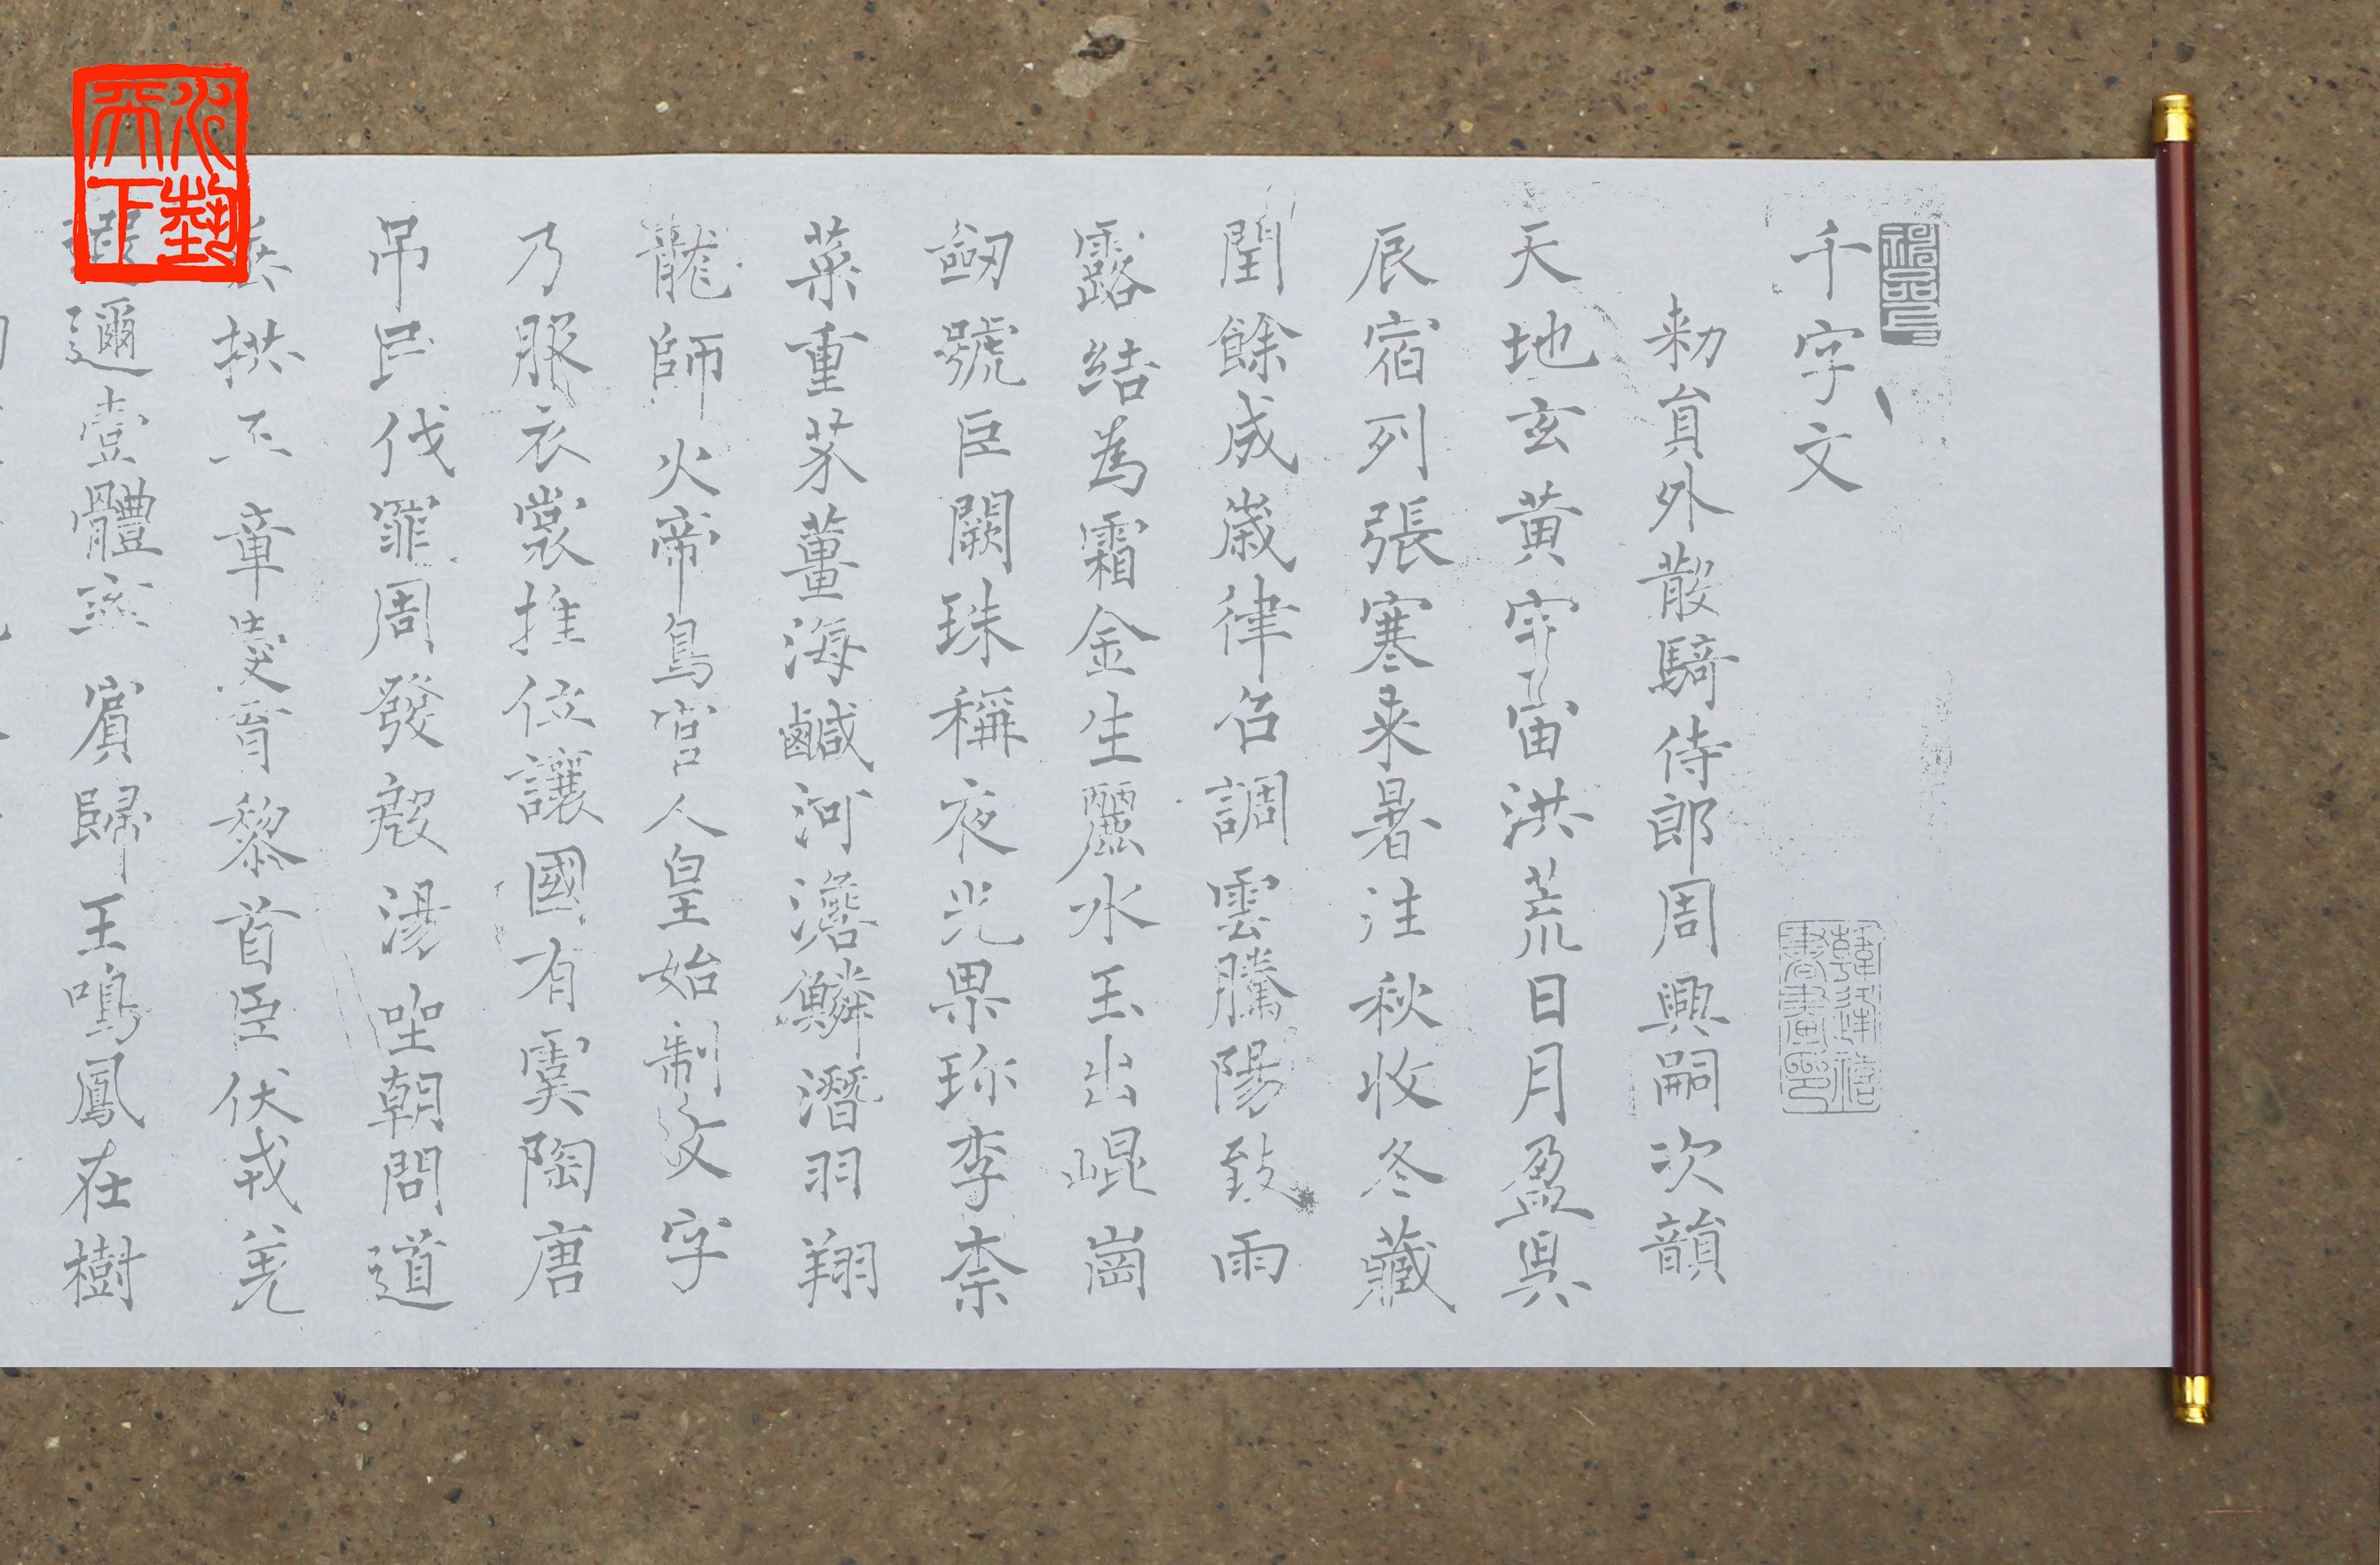 千字文
韓逢禧書畫印
勑員外散騎侍郎周興嗣次韻
天地玄黄宇宙洪荒日月盈昃
辰宿列張寒来暑往秋收冬藏
閏餘成歲律召調雲騰陽致雨
露結為霜金生麗水玉出崐崗
劒號巨闕珠稱夜光果珎李柰
菜重芥薑海鹹河澹鱗潛羽翔
龍師火帝鳥官人皇始制文字
乃服衣裳推位讓國有虞陶唐
吊民伐罪周發殷湯坐朝問道
垂拱平章愛育黎首臣伏戎羌
遐邇壹體率賓歸王鳴鳳在樹